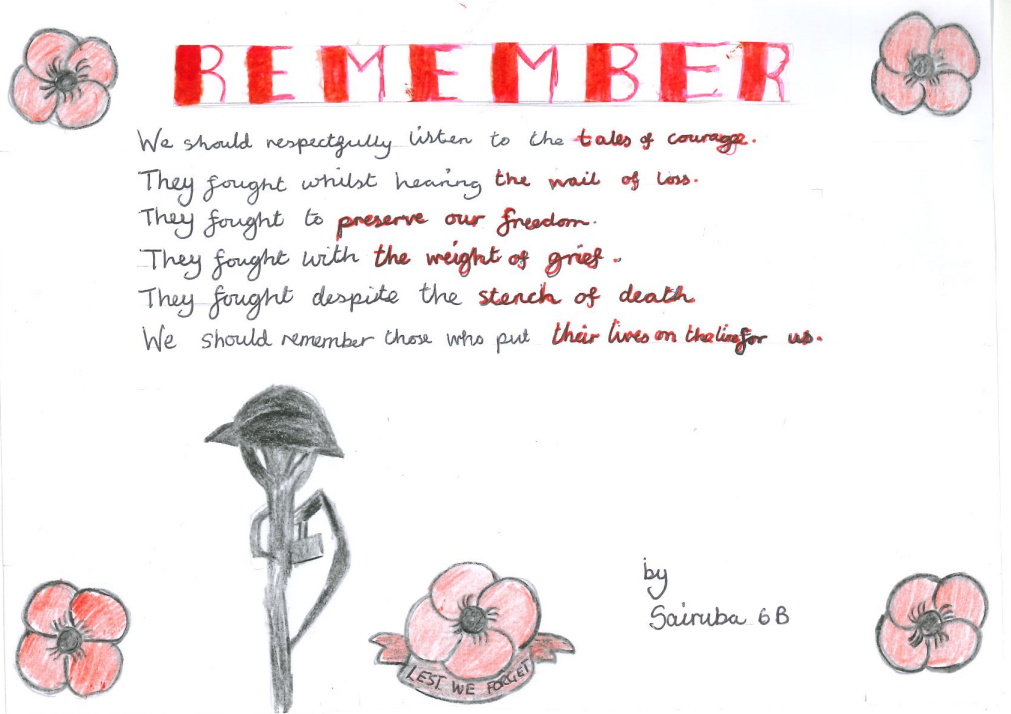 REMEMBER
We should respectfully listen to the tales of courage.
They fought whilst hearing the wail of loss.
They fought to preserve our freedom.
They fought with the weight of grief.
They fought despite the stench of death
We should remember those who put their lives on the line for us.
by
Sairuba 6B
LEST WE FORGET